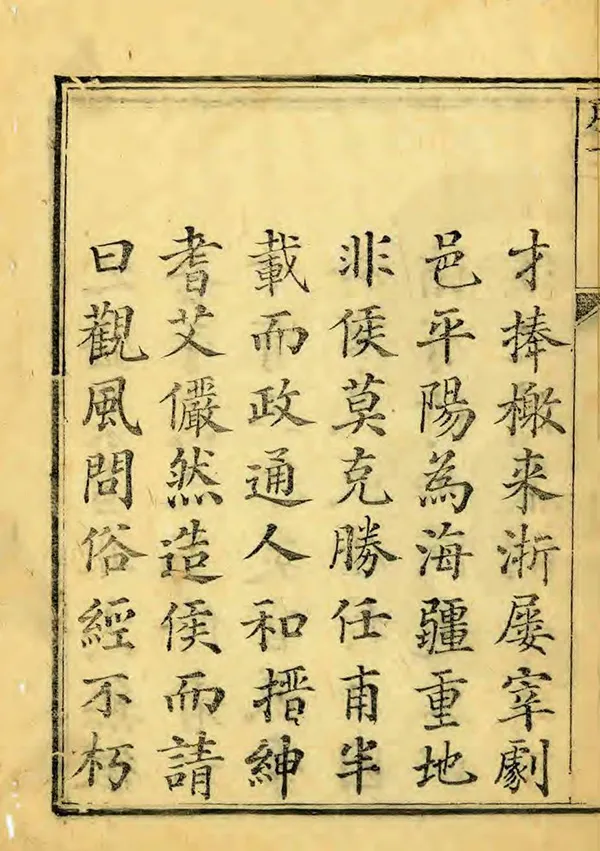 才捧檄来浙屢宰劇
邑平陽為海疆重地
非侯莫克勝任甫半
載而政通人和搢紳
耆艾儼然造侯而請
曰觀風問俗經不朽